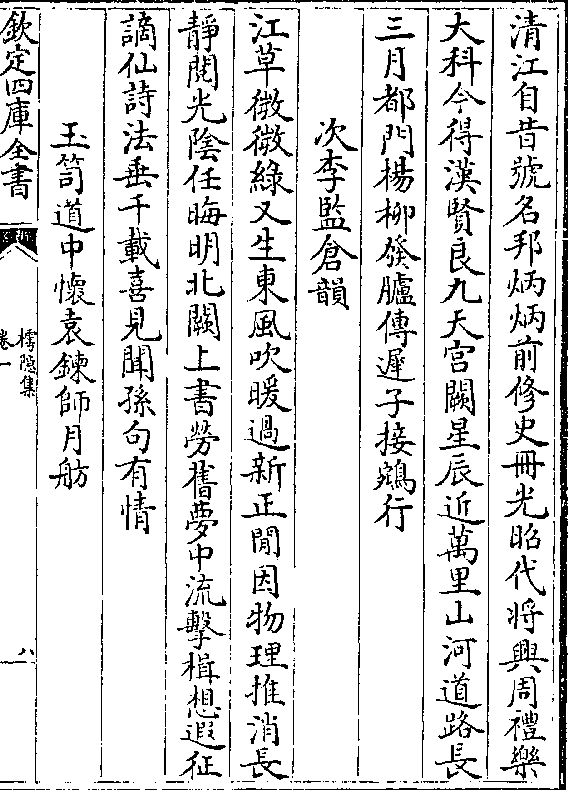 清江自昔號名邦炳炳前修史冊光昭代將興周禮樂
大科今得漢賢良九天宮闕星辰近萬里山河道路長
三月都門楊柳發臚傳遲子接鵷行
次李監倉韻
江草微微綠又生東風吹暖過新正閒因物理推消長
靜閱光陰任晦明北闕上書勞舊夢中流擊楫想遐征
謫仙詩法垂千載喜見聞孫句有情
玉笥道中懷袁鍊師月舫
欽定四庫全書
樗隠集
卷一
八